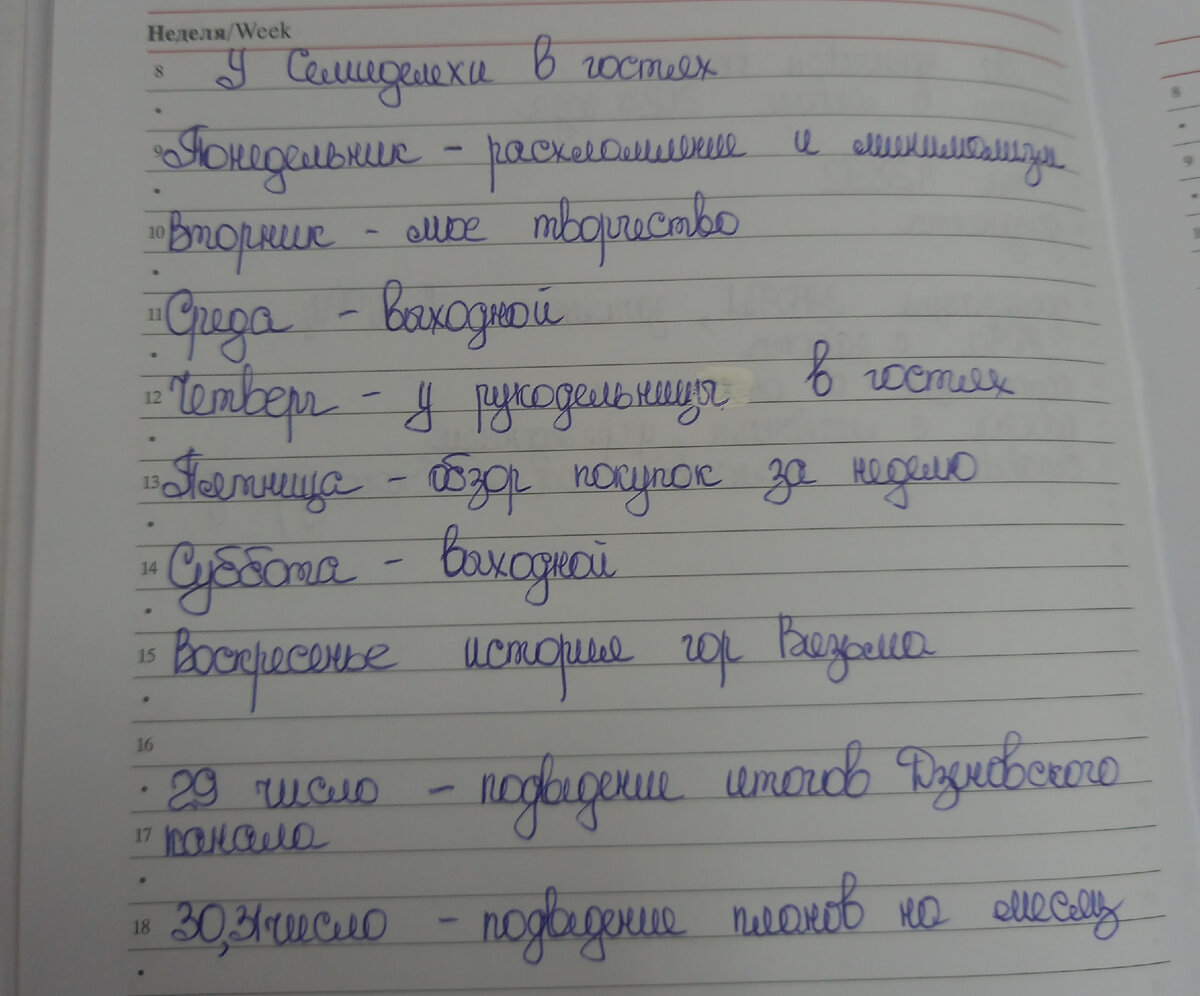 Неделя/Week
8 У Семиделехи в гостях
9 Понедельник - расхламление и минимализм
10 Вторник - мое творчество
11 Среда - выходной
12 Четверг - у рукодельницы в гостях
13 Пятница - обзор покупок за неделю
14 Суббота - выходной
15 Воскресенье история гор Вязьма
16
29 число - подведение итогов Дзеновского
17 канала
18 30,31число - подведение планов на месяц
8
9